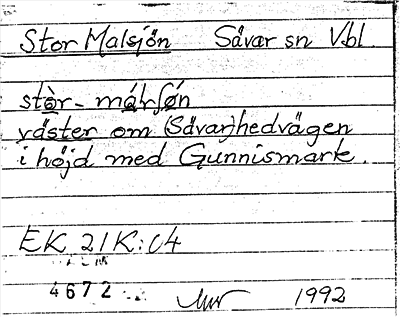 Stor Malsjön Sävar sn Vbl.
stòr- málsʃø̀n
väster om (Sävar)hedvägen
i höjd med Gunnismark.
EK 21K:c4
4672
1992